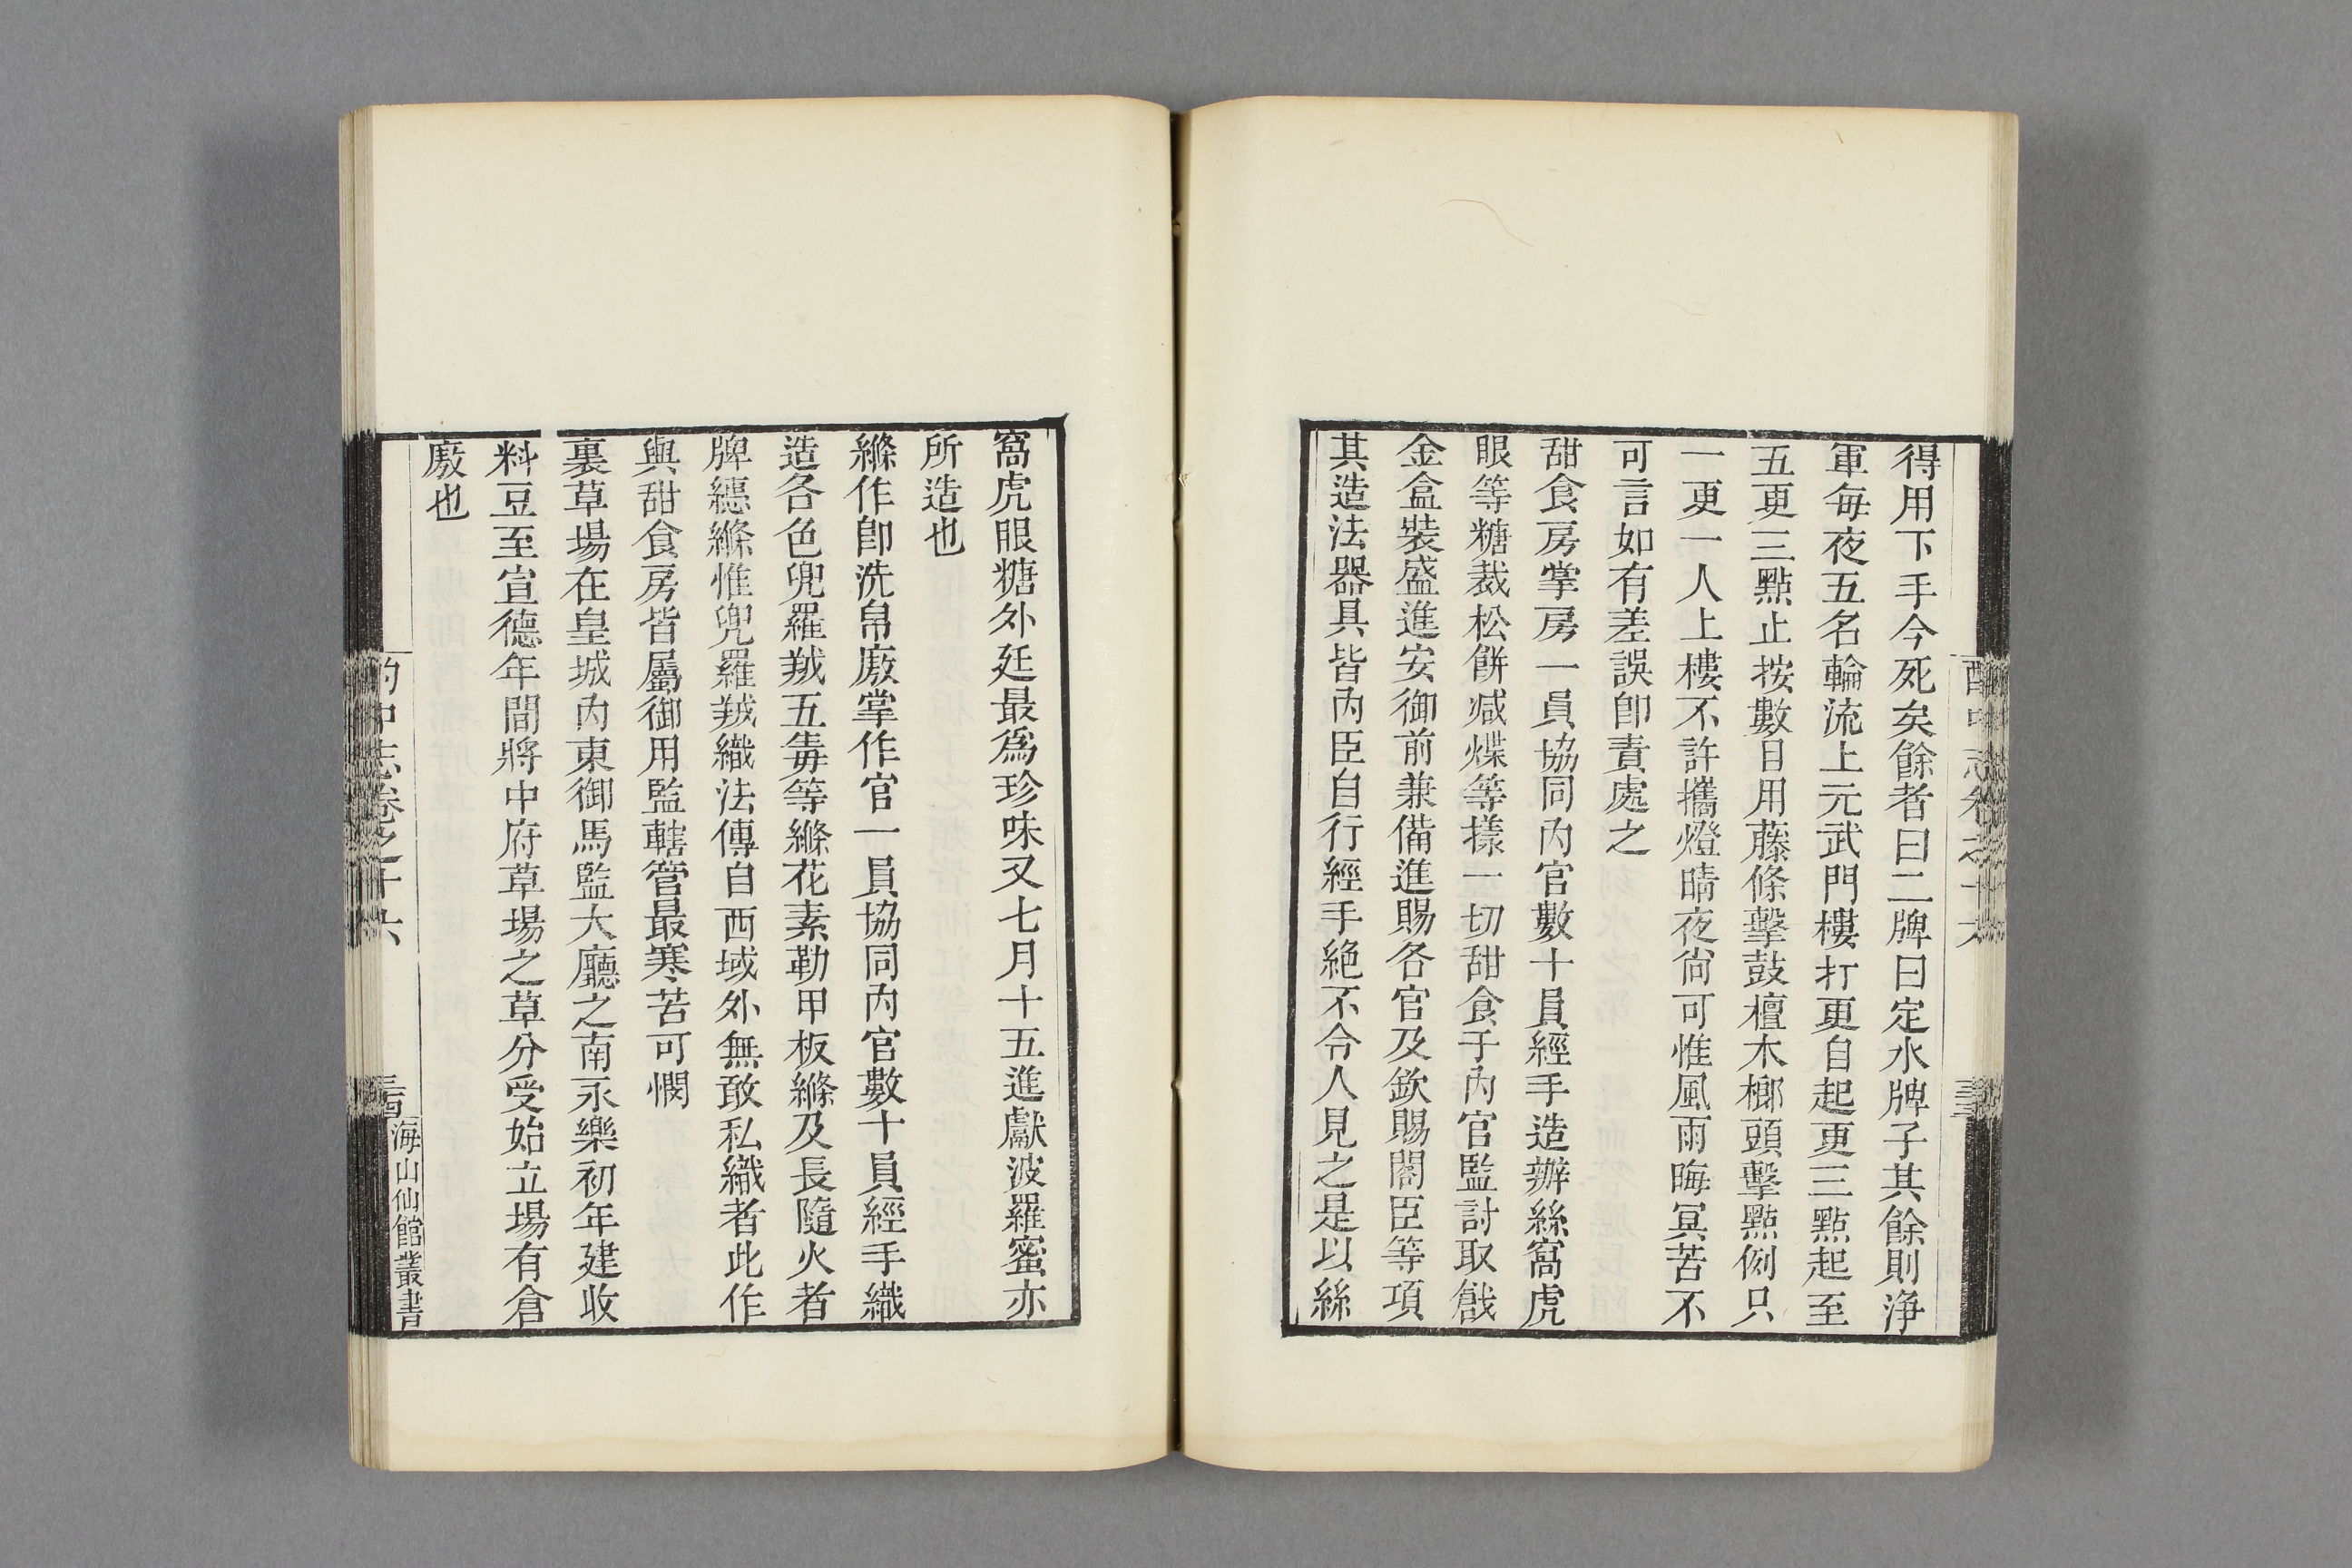 得用下手今死矣餘者曰二牌曰定水牌子其餘則淨
軍每夜五名輪流上元武門樓打更自起更三點起至
五更三點止按數目用藤條擊鼓檀木榔頭擊點例只
一更一人上樓不許攜燈晴夜尚可惟風雨晦冥苦不
可言如有差誤卽責處之
甜食房掌房一員協同內官數十員經手造辦絲窩虎
眼等糖裁松餅減煠等樣一切甜食于內官監討取戧
金盒裝盛進安御前兼備進賜各官及欽賜閣臣等項
其造法器具皆內臣自行經手絕不令人見之是以絲
窩虎眼糖外廷最爲珍味又七月十五進獻波羅蜜亦
所造也
絛作卽洗帛廠掌作官一員協同內官數十員經手織
造各色兜羅羢五毒等絛花素勒甲板絛及長隨火者
牌繐絛惟兜羅羢織法傳自西域外無敢私織者此作
與甜食房皆屬御用監轄管最寒苦可憫
裏草場在皇城內東御馬監大廳之南永樂初年建收
料豆至宣德年間將中府草場之草分受始立場有倉
廒也
酌中志卷之十六
海山仙館叢書